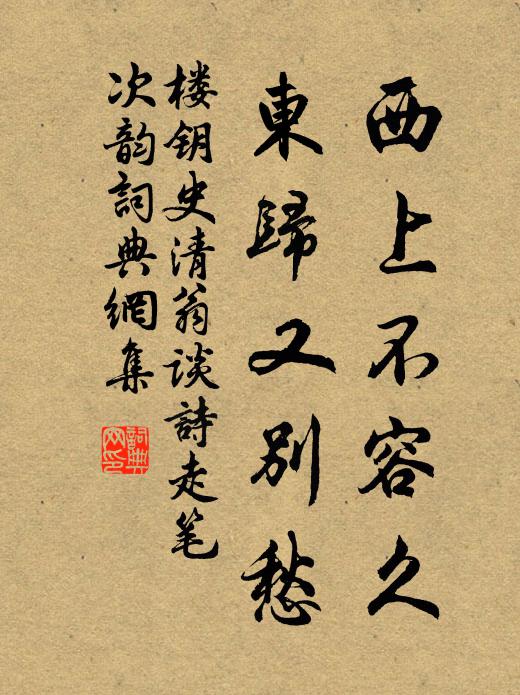 西上不容久
東歸又別愁
楼鑰史清翁談詩走笔
次韵詞典網集
詞典网印